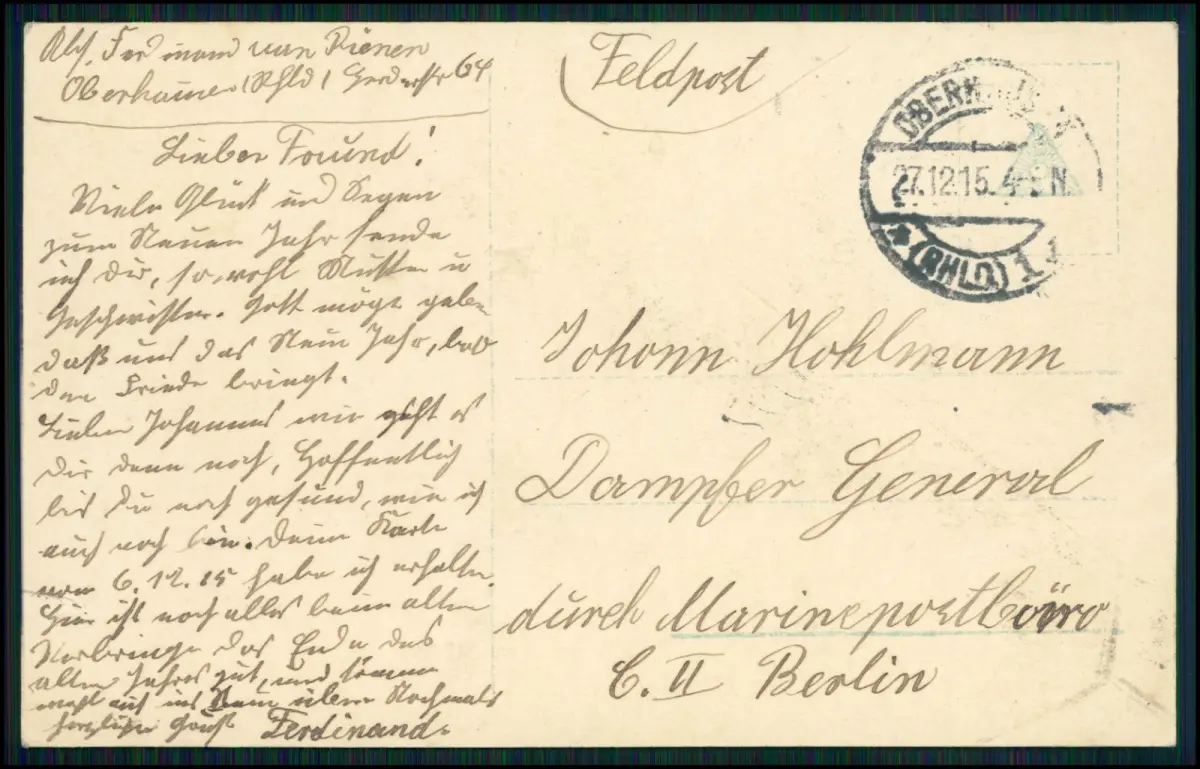 Abs. Ferdinand van Rienen
Oberhausen (Rhld) 64
Lieber Freund!
Viele Glück und Segen
zum Neuen Jahr sende
ich dir, sowohl Mutter u
Geschwister. Gott möge geben
daß uns das Neue Jahr, bald
den Friede bringt.
Lieber Johannes wie geht es
dir denn noch, Hoffentlich
bis Du noch gesund, wie ich
auch noch bin. Deine Karte
vom 6.12.15 habe ich erhalten.
Hier ist noch alles beim alten
Verbringe das Ende des
alten Jahres gut, und
auch ins Neue Nochmals
herzlichen Gruß Ferdinand.
Feldpost
OBERHAUSEN
27.12.15. 4-5 N.
* (RHLD.) 1
Johann Hohlmann
Dampfer General
durch Marinepostbüro
C. II Berlin